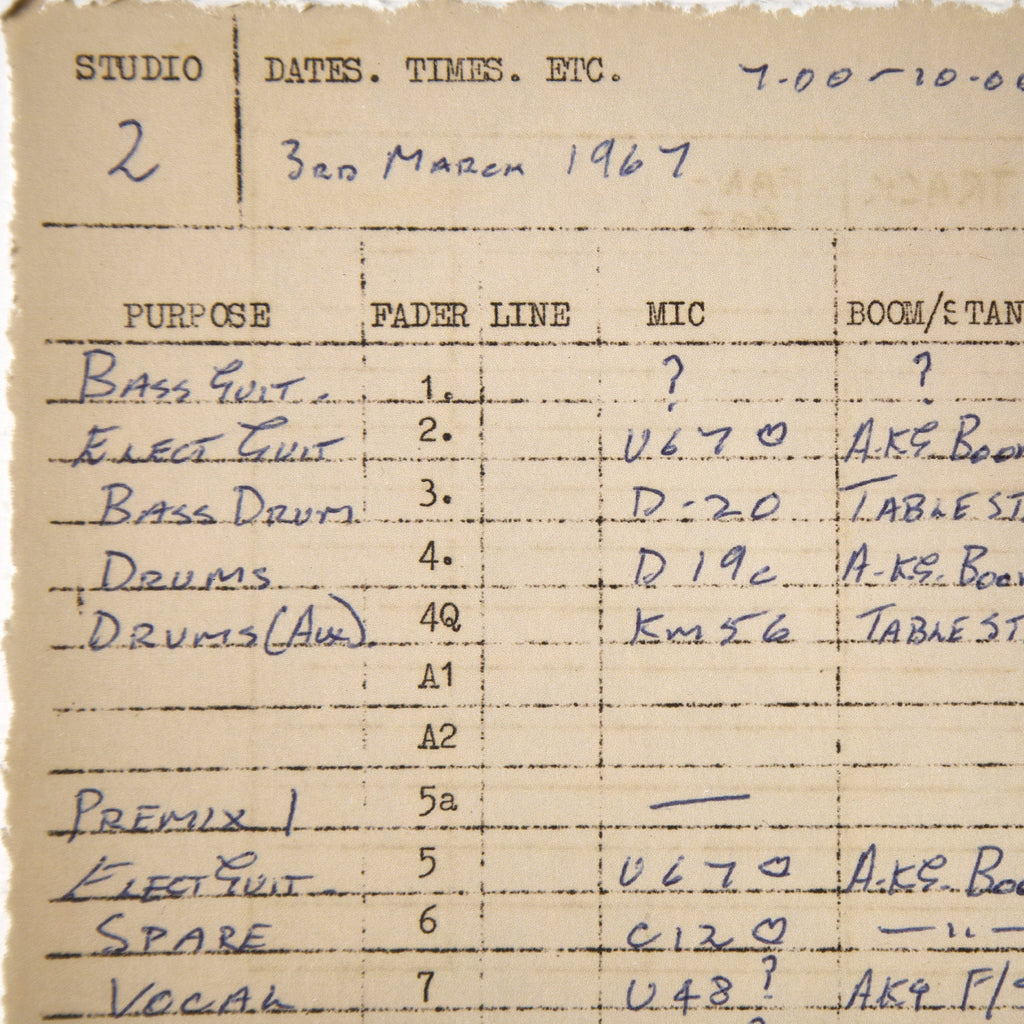 STUDIO DATES. TIMES. ETC. 7-00 - 10-00
2 3RD MARCH 1967
PURPOSE FADER LINE MIC BOOM/STAN
BASS GUIT. 1. ? ?
ELECT GUIT 2. U67 A.KG. BOOM
BASS DRUM 3. D-20 TABLE ST
DRUMS 4. D19c A-KG. BOOM
DRUMS (AUX). 4Q KM56 TABLE ST
A1
A2
PREMIX 1 5a —
ELECT GUIT. 5 U67 A.KG. BOO
SPARE 6 C12 — " —
VOCAL 7 U48 ? AKG F/S